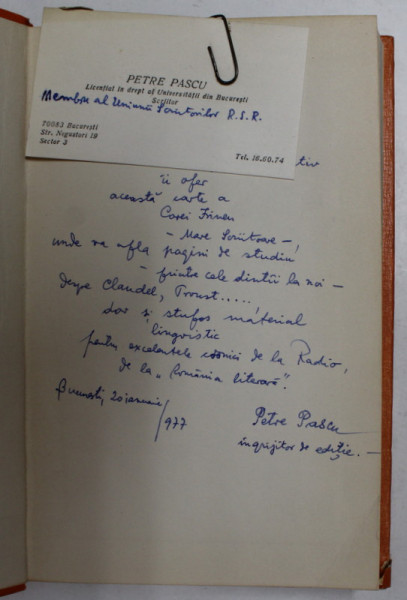 PETRE PASCU
Licențiat în drept al Universității din București
Scriitor
Membru al Uniunii Scriitorilor R.S.R.
70083 București
Str. Negustori 19
Sector 3
Tel. 16.60.74
îi ofer
această carte a
- Mare Scriitoare - !
unde va afla pagini de studiu
- printre cele dintîi la noi -
despre Claudel, Proust.....
dar și stufos material
lingvistic
pentru excelentele cronici de la Radio,
de la „România literară".
București, 20 ianuarie/977
Petre Pascu
îngrijitor de ediție. -